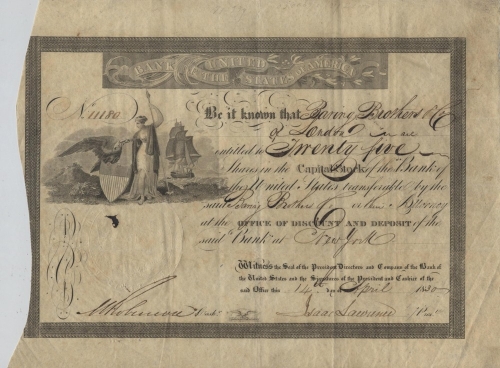 BANK OF THE UNITED STATES OF AMERICA
No. 11180
Be it known that Baring Brothers & Co
of London
entitled to Twenty five
Shares in the Capital Stock of the Bank of
the United States transferable by the
said Baring Brothers & Co or their Attorney
at the OFFICE OF DISCOUNT AND DEPOSIT of the
said Bank at New York
Witness the Seal of the President Directors and Company of the Bank of
the United States and the Signatures of the President and Cashier of the
said Office this 14th day of April 1830
M Robinson Cash.r Isaac Lawrence Pres.t